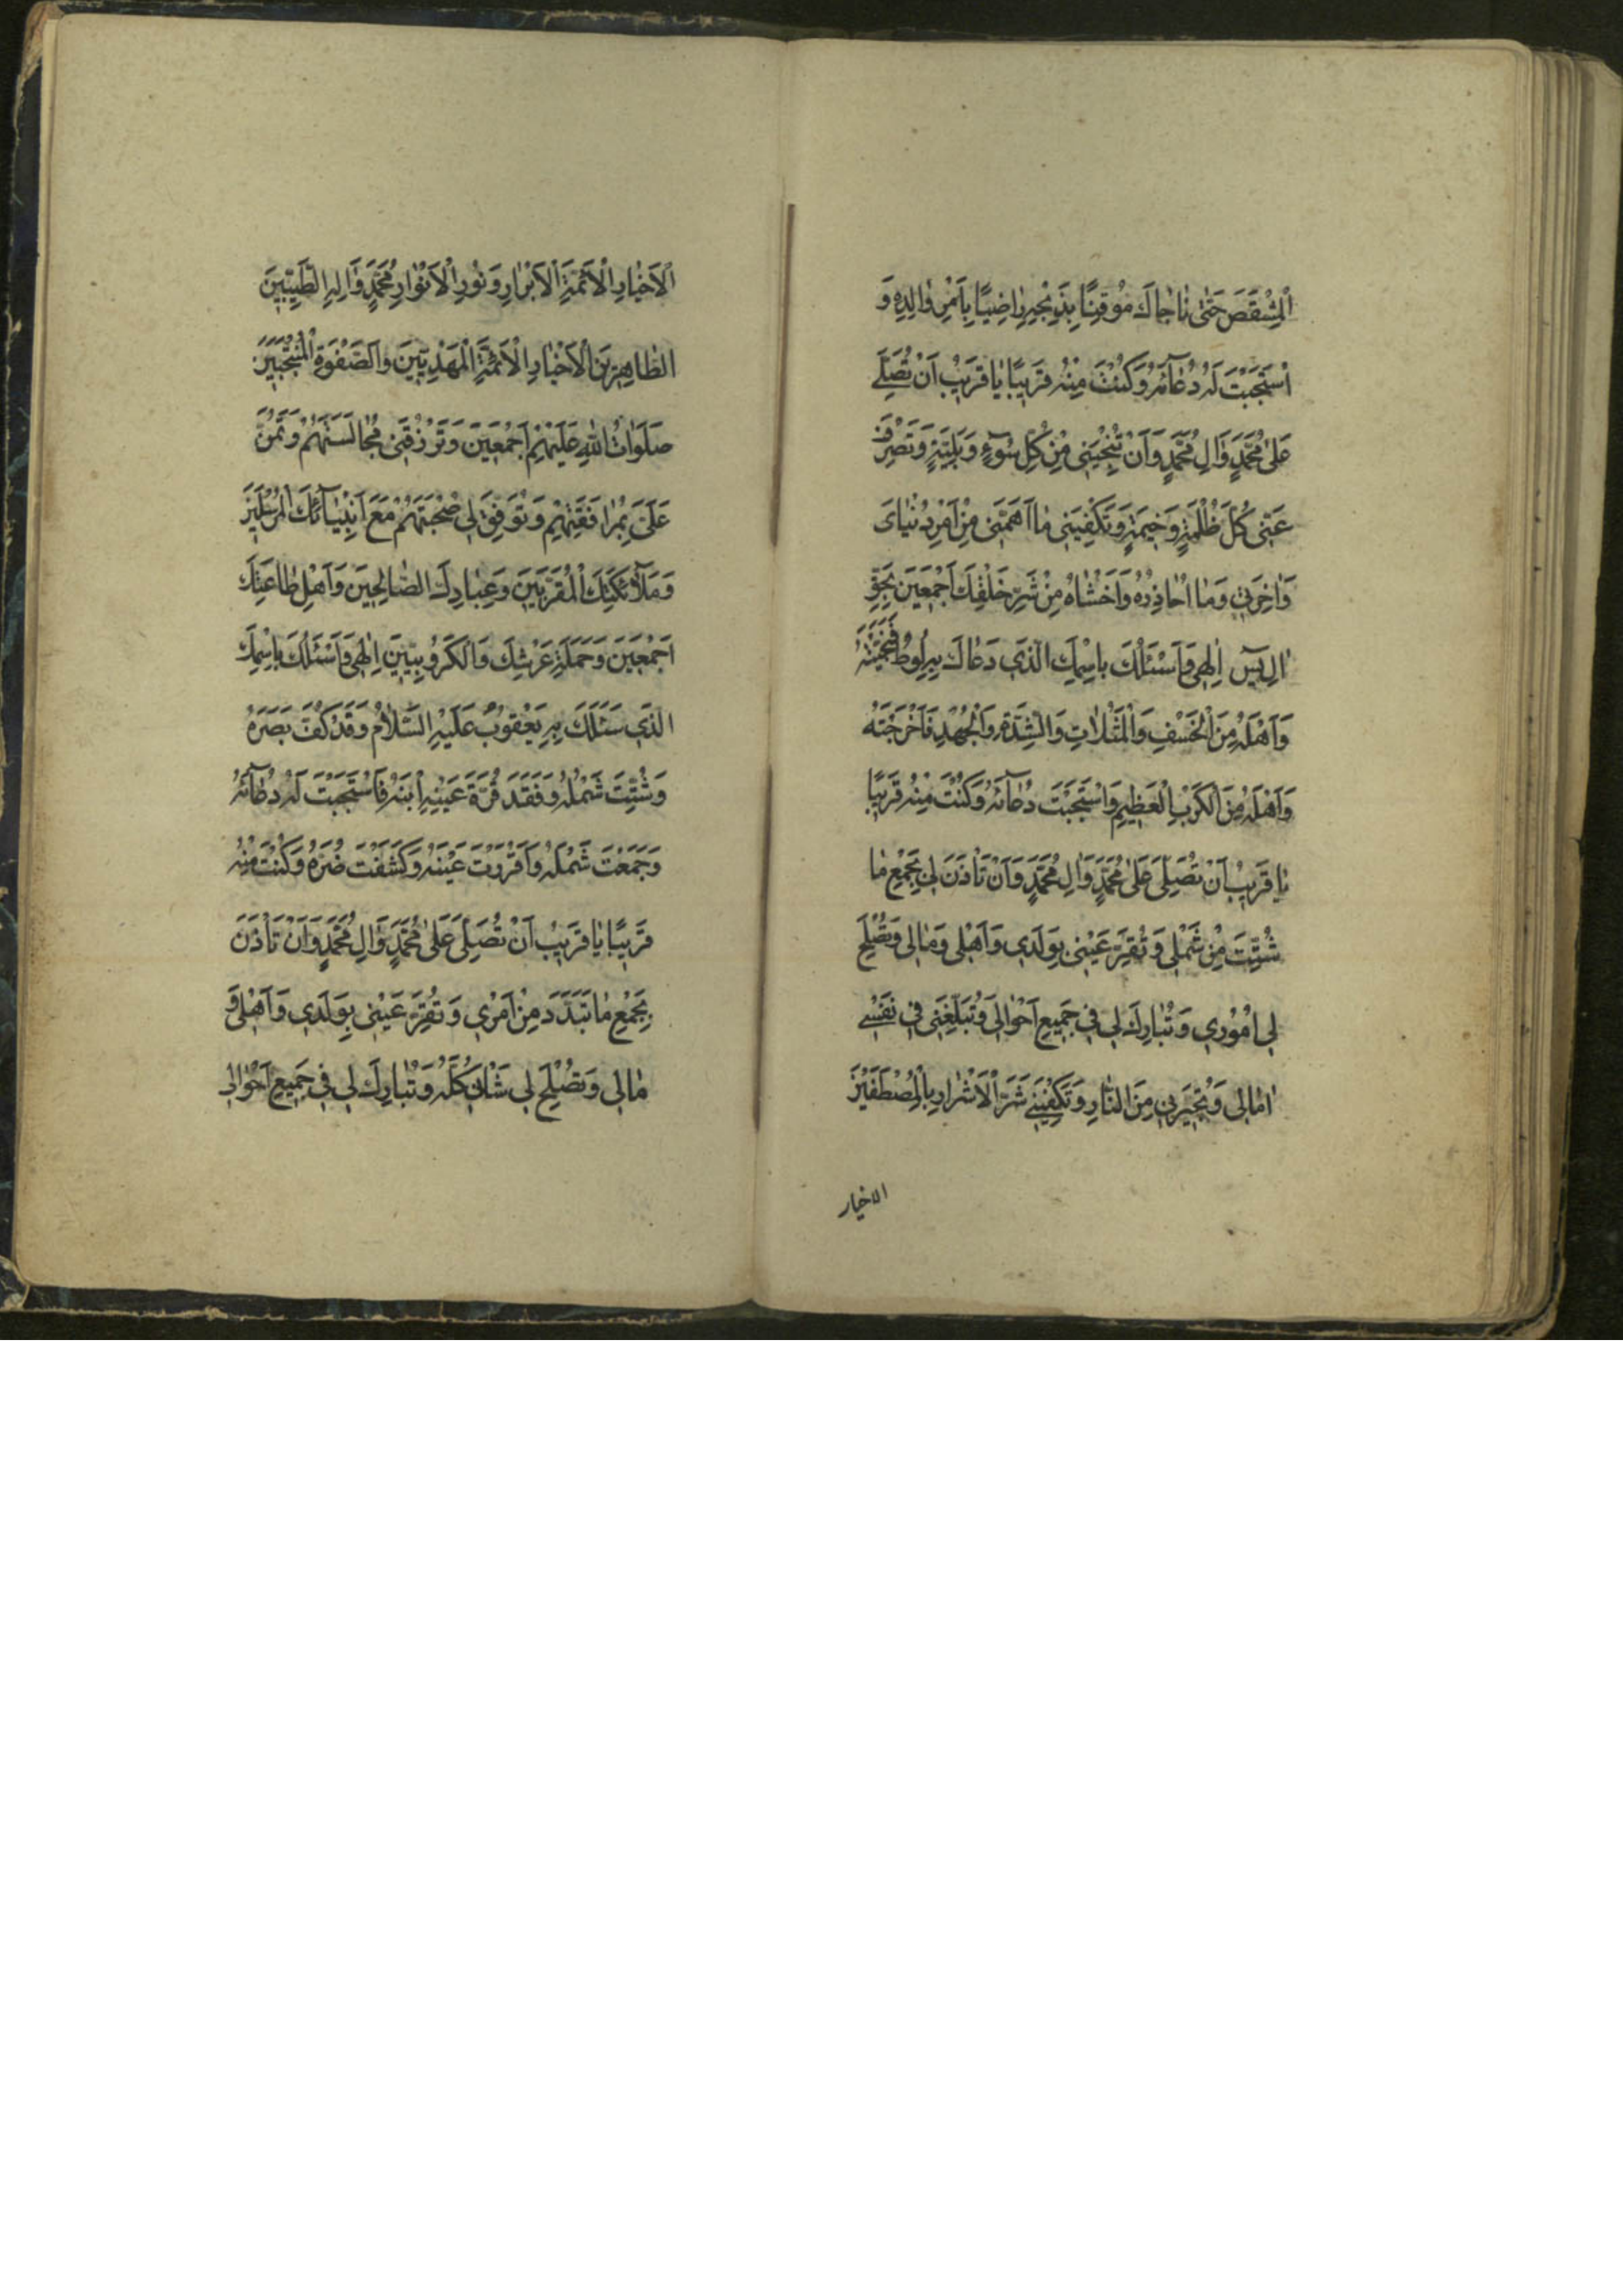 الْمِشْقَصَ حَتّٰى نَاجَاكَ مُوقِنًا بِذَبْحِهِ رَاضِيًا بِاَمْرِ وَالِدِهِ وَ
اسْتَجَبْتَ لَهُ دُعَآئَهُ وَكُنْتَ مِنْهُ قَرِيبًا يَا قَرِيبُ اَنْ تُصَلِّىَ
عَلىٰ مُحَمَّدٍ وَاٰلِ مُحَمَّدٍ وَاَنْ تُنْجِيَنِى مِنْ كُلِّ سُوٓءٍ وَبَلِيَّةٍ وَتَصْرِفَ
عَنِّى كُلَّ ظُلْمَةٍ وَخِيمَةٍ وَتَكْفِيَنِى مَا اَهَمَّنِى مِنْ اَمْرِ دُنْيَاىَ
وَاٰخِرَتِى وَمَا اُحَاذِرُهُ وَاَخْشَاهُ مِنْ شَرِّ خَلْقِكَ اَجْمَعِينَ بِحَقِّ
اٰلِ يٰسٓ اِلٰهِى وَاَسْئَلُكَ بِاسْمِكَ الَّذِى دَعَاكَ بِهِ لُوطٌ فَنَجَّيْتَهُ
وَاَهْلَهُ مِنَ الْخَسْفِ وَالْمَثُلَاتِ وَالشِّدَّةِ وَالْجُهْدِ فَاَخْرَجْتَهُ
وَاَهْلَهُ مِنَ الْكَرْبِ الْعَظِيمِ وَاسْتَجَبْتَ دُعَآئَهُ وَكُنْتَ مِنْهُ قَرِيبًا
يَا قَرِيبُ اَنْ تُصَلِّىَ عَلىٰ مُحَمَّدٍ وَاٰلِ مُحَمَّدٍ وَاَنْ تَأْذَنَ لِى بِجَمْعِ مَا
شُتِّتَ مِنْ شَمْلِى وَتُقِرَّ عَيْنِى بِوَلَدِى وَاَهْلِى وَمَالِى وَتُصْلِحَ
لِى اُمُورِى وَتُبَارِكَ لِى فِى جَمِيعِ اَحْوَالِى وَتُبَلِّغَنِى فِى نَفْسِى
اٰمَالِى وَتُجِيرَنِى مِنَ النَّارِ وَتَكْفِيَنِى شَرَّ الْاَشْرَارِ بِالْمُصْطَفَيْنَ
الاخيار
الْاَخْيَارِ الْاَئِمَّةِ الْاَبْرَارِ وَنُورِ الْاَنْوَارِ مُحَمَّدٍ وَاٰلِهِ الطَّيِّبِينَ
الطَّاهِرِينَ الْاَخْيَارِ الْاَئِمَّةِ الْمَهْدِيِّينَ وَالصَّفْوَةِ الْمُنْتَجَبِينَ
صَلَوَاتُ اللّٰهِ عَلَيْهِمْ اَجْمَعِينَ وَتَرْزُقَنِى مُجَالَسَتَهُمْ وَتَمُنَّ
عَلَىَّ بِمُرَافَقَتِهِمْ وَتُوَفِّقَ لِى صُحْبَتَهُمْ مَعَ اَنْبِيَآئِكَ الْمُرْسَلِينَ
وَمَلَآئِكَتِكَ الْمُقَرَّبِينَ وَعِبَادِكَ الصَّالِحِينَ وَاَهْلِ طَاعَتِكَ
اَجْمَعِينَ وَحَمَلَةِ عَرْشِكَ وَالْكَرُوبِيِّينَ اِلٰهِى وَاَسْئَلُكَ بِاسْمِكَ
الَّذِى سَئَلَكَ بِهِ يَعْقُوبُ عَلَيْهِ السَّلَامُ وَقَدْ كُفَّ بَصَرُهُ
وَشُتِّتَ شَمْلُهُ وَفَقَدَ قُرَّةَ عَيْنِهِ ابْنَهُ فَاسْتَجَبْتَ لَهُ دُعَآئَهُ
وَجَمَعْتَ شَمْلَهُ وَاَقْرَرْتَ عَيْنَهُ وَكَشَفْتَ ضُرَّهُ وَكُنْتَ مِنْهُ
قَرِيبًا يَا قَرِيبُ اَنْ تُصَلِّىَ عَلىٰ مُحَمَّدٍ وَاٰلِ مُحَمَّدٍ وَاَنْ تَأْذَنَ
بِجَمْعِ مَا تَبَدَّدَ مِنْ اَمْرِى وَتُقِرَّ عَيْنِى بِوَلَدِى وَاَهْلِى وَ
مَالِى وَتُصْلِحَ لِى شَأْنِى كُلَّهُ وَتُبَارِكَ لِى فِى جَمِيعِ اَحْوَالِى